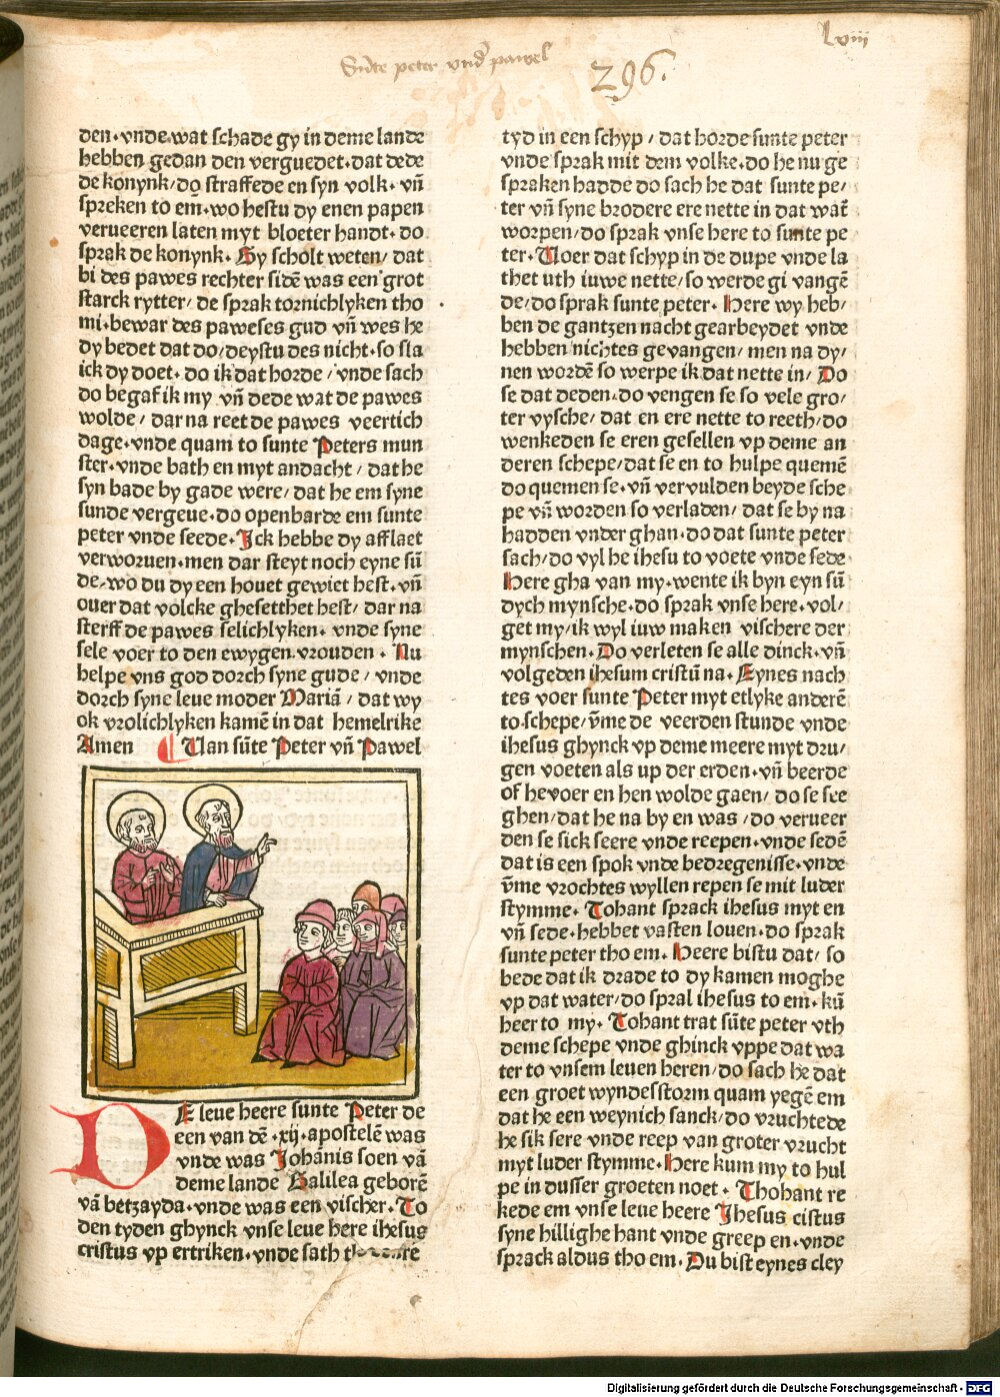 Sūte peter vnd pawel
Lviij
296.
den·vnde wat schade gy in deme lande
hebben gedan den verguedet·dat dede
de konynk/do straffede en syn volk·vn̄
spreken to em̄·wo hestu dy enen papen
verueeren laten myt bloeter handt·do
sprak de konynk·Gy scholt weten/dat
bi des pawes rechter sidē was een grot
starck rytter/de sprak tornichlyken tho
mi·bewar des paweses gud vn̄ wes he
dy bedet dat do/deystu des nicht·so sla
ick dy doet·do ik dat horde/vnde sach
do begaf ik my vn̄ dede wat de pawes
wolde/dar na reet de pawes veertich
dage·vnde quam to sunte Peters mun
ster·vnde bath en myt andacht/dat he
syn bade by gade were/dat he em syne
sunde vergeue·do openbarde em sunte
peter vnde seede·Ick hebbe dy afflaet
verworuen·men dar steyt noch eyne sū
de·wo du dy een houet gewiet hest·vn̄
ouer dat volcke ghesetthet hest/dar na
sterff de pawes selichlyken·vnde syne
sele voer to den ewygen vrouden·Nu
helpe vns god dorch syne gude/vnde
dorch syne leue moder Mariā/dat wy
ok vrolichlyken kamē in dat hemelrike
Amen ¶ Uan sūte Peter vn̄ Pawel
DE leue heere sunte Peter de
een van dē·xij·apostelē was
vnde was Johānis soen vā
deme lande Galilea geborē
vā betzayda·vnde was een vischer·To
den tyden ghynck vnse leue here ihesus
cristus vp ertriken·vnde sath
tyd in een schyp/dat horde sunte peter
vnde sprak mit dem volke·do he nu ge
spraken hadde do sach he dat sunte pe/
ter vn̄ syne brodere ere nette in dat wat̄
worpen/do sprak vnse here to sunte pe
ter·Uoer dat schyp in de dupe vnde la
thet uth iuwe nette/so werde gi vangē
de/do sprak sunte peter·Here wy heb/
ben de gantzen nacht gearbeydet vnde
hebben nichtes gevangen/men na dy/
nen wordē so werpe ik dat nette in/Do
se dat deden·do vengen se so vele gro/
ter vysche/dat en ere nette to reeth/do
wenkeden se eren gesellen vp deme an
deren schepe/dat se en to hulpe quemē
do quemen se·vn̄ vervulden beyde sche
pe vn̄ worden so verladen/dat se by na
hadden vnder ghan·do dat sunte peter
sach/do vyl he ihesu to voete vnde sede
Here gha van my·wente ik byn eyn sū
dych mynsche·do sprak vnse here·vol/
get my/ik wyl iuw maken vischere der
mynschen·Do verleten se alle dinck·vn̄
volgeden ihesum cristū na·Eynes nach
tes voer sunte Peter myt etlyke anderē
to schepe/v̄me de veerden stunde vnde
ihesus ghynck vp deme meere myt dru/
gen voeten als up der erden·vn̄ beerde
of he voer en hen wolde gaen/do se see
ghen/dat he na by en was/do verueer
den se sick seere vnde reepen·vnde sedē
dat is een spok vnde bedregenisse·vnde
v̄me vrochtes wyllen repen se mit luder
stymme·Tohant sprack ihesus myt en
vn̄ sede·hebbet vasten louen·do sprak
sunte peter tho em·Heere bistu dat/so
bede dat ik drade to dy kamen moghe
vp dat water/do spral ihesus to em·kū
heer to my·Tohant trat sūte peter vth
deme schepe vnde ghinck vppe dat wa
ter to vnsem leuen heren/do sach he dat
een groet wyndesstorm quam yegē em
dat he een weynich sanck/do vruchtede
he sik sere vnde reep van groter vrucht
myt luder stymme·Here kum my to hul
pe in dusser groeten noet·Thohant re
kede em vnse leue heere Jhesus cistus
syne hillighe hant vnde greep en·vnde
sprack aldus tho em·Du bist eynes cley
Digitalisierung gefördert durch die Deutsche Forschungsgemeinschaft - DFG